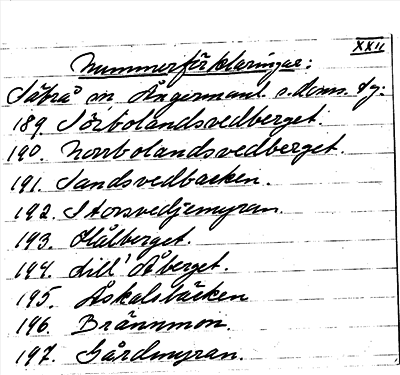 XXII
Nummerförklaringar:
Säbrå sn, Ångermanl. s. doms. dg:
189. Sörbolandsvedberget.
190. Norrbolandsvedberget.
191. Sandsvedbacken.
192. Storsvedjemyran.
193. Hålberget.
194. Lill' Åberget.
195. Åskalsbäcken
196. Brännmon.
197. Gårdmyran.